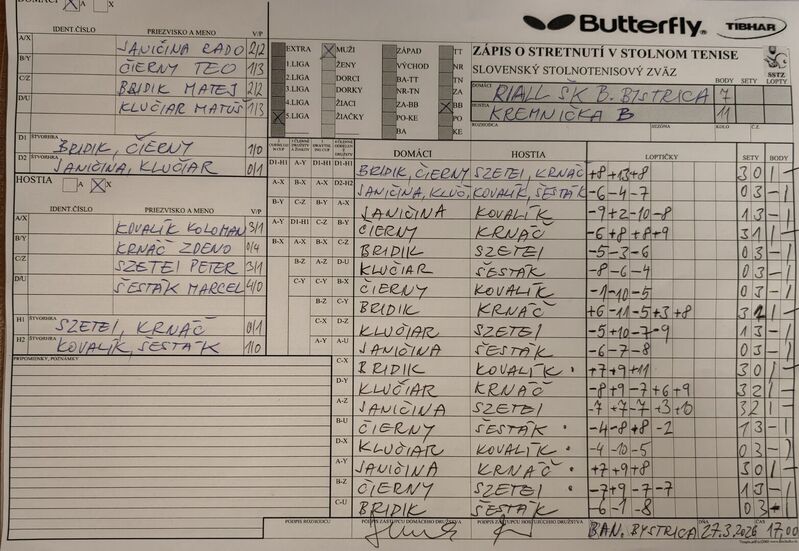 DOMÁCI A X
Butterfly TIBHAR
IDENT.ČÍSLO PRIEZVISKO A MENO V/P
A/X JANIČINA RADO 2/2
B/Y ČIERNY TEO 1/3
C/Z BRIDIK MATEJ 2/2
D/U KLUČIAR MATÚŠ 1/3
D1 ŠTVORHRA BRIDIK, ČIERNY 1/0
D2 ŠTVORHRA JANIČINA, KLUČIAR 0/1
HOSTIA A X
IDENT.ČÍSLO PRIEZVISKO A MENO V/P
A/X KOVALÍK KOLOMAN 3/1
B/Y KRNÁČ ZDENO 0/4
C/Z SZETEI PETER 3/1
D/U ŠESTÁK MARCEL 4/0
H1 ŠTVORHRA SZETEI, KRNÁČ 0/1
H2 ŠTVORHRA KOVALÍK, ŠESTÁK 1/0
PRIPOMIENKY, POZNÁMKY
EXTRA MUŽI ZÁPAD TT
1.LIGA ŽENY VÝCHOD NR
2.LIGA DORCI BA-TT TN
3.LIGA DORKY NR-TN ZA
4.LIGA ŽIACI ZA-BB BB
5.LIGA ŽIAČKY PO-KE PO
BA KE
ZÁPIS O STRETNUTÍ V STOLNOM TENISE
SLOVENSKÝ STOLNOTENISOVÝ ZVÄZ
SSTZ
BODY LOPTY
DOMÁCI RIALL ŠK B. BYSTRICA 7
HOSTIA KREMNIČKA B 11
ROZHODCA SEZÓNA KOLO Č.Z.
DOMÁCI HOSTIA LOPTIČKY SETY BODY
D1-H1 A-Y D1-H1 D1-H1 BRIDIK, ČIERNY SZETEI, KRNÁČ +8 +13 +8 3 0 1 -
A-X B-X A-X D2-H2 JANIČINA, KLUČ. KOVALÍK, ŠESTÁK -6 -4 -7 0 3 - 1
B-Y C-Z B-Y A-X JANIČINA KOVALÍK -9 +2 -10 -8 1 3 - 1
A-Y D1-H1 C-Z B-Y ČIERNY KRNÁČ -6 +8 +8 +9 3 1 1 -
B-X A-X B-X C-Z BRIDIK SZETEI -5 -3 -6 0 3 - 1
B-Z A-Z D-U KLUČIAR ŠESTÁK -8 -6 -4 0 3 - 1
C-Y C-Y B-X ČIERNY KOVALÍK -1 -10 -5 0 3 - 1
B-Z C-Y BRIDIK KRNÁČ +6 -11 -5 +3 +8 3 2 1 -
C-X D-Z KLUČIAR SZETEI -5 +10 -7 -9 1 3 - 1
A-Y A-U JANIČINA ŠESTÁK -6 -7 -8 0 3 - 1
C-X BRIDIK KOVALÍK +7 +9 +11 3 0 1
D-Y KLUČIAR KRNÁČ -8 +9 -7 +6 +9 3 2 1 -
A-Z JANIČINA SZETEI -7 +7 -7 +3 +10 3 2 1 -
B-U ČIERNY ŠESTÁK -4 -8 +8 -2 1 3 - 1
D-X KLUČIAR KOVALÍK -4 -10 -5 0 3 - 1
A-Y JANIČINA KRNÁČ +7 +9 +8 3 0 1 -
B-Z ČIERNY SZETEI -7 +9 -7 -7 1 3 - 1
C-U BRIDIK ŠESTÁK -6 -1 -8 0 3 - 1
PODPIS ROZHODCU PODPIS ZÁSTUPCU DOMÁCEHO DRUŽSTVA PODPIS ZÁSTUPCU HOSŤUJÚCEHO DRUŽSTVA V DŇA ČAS
BAN. BYSTRICA 27.3.2026 17,00